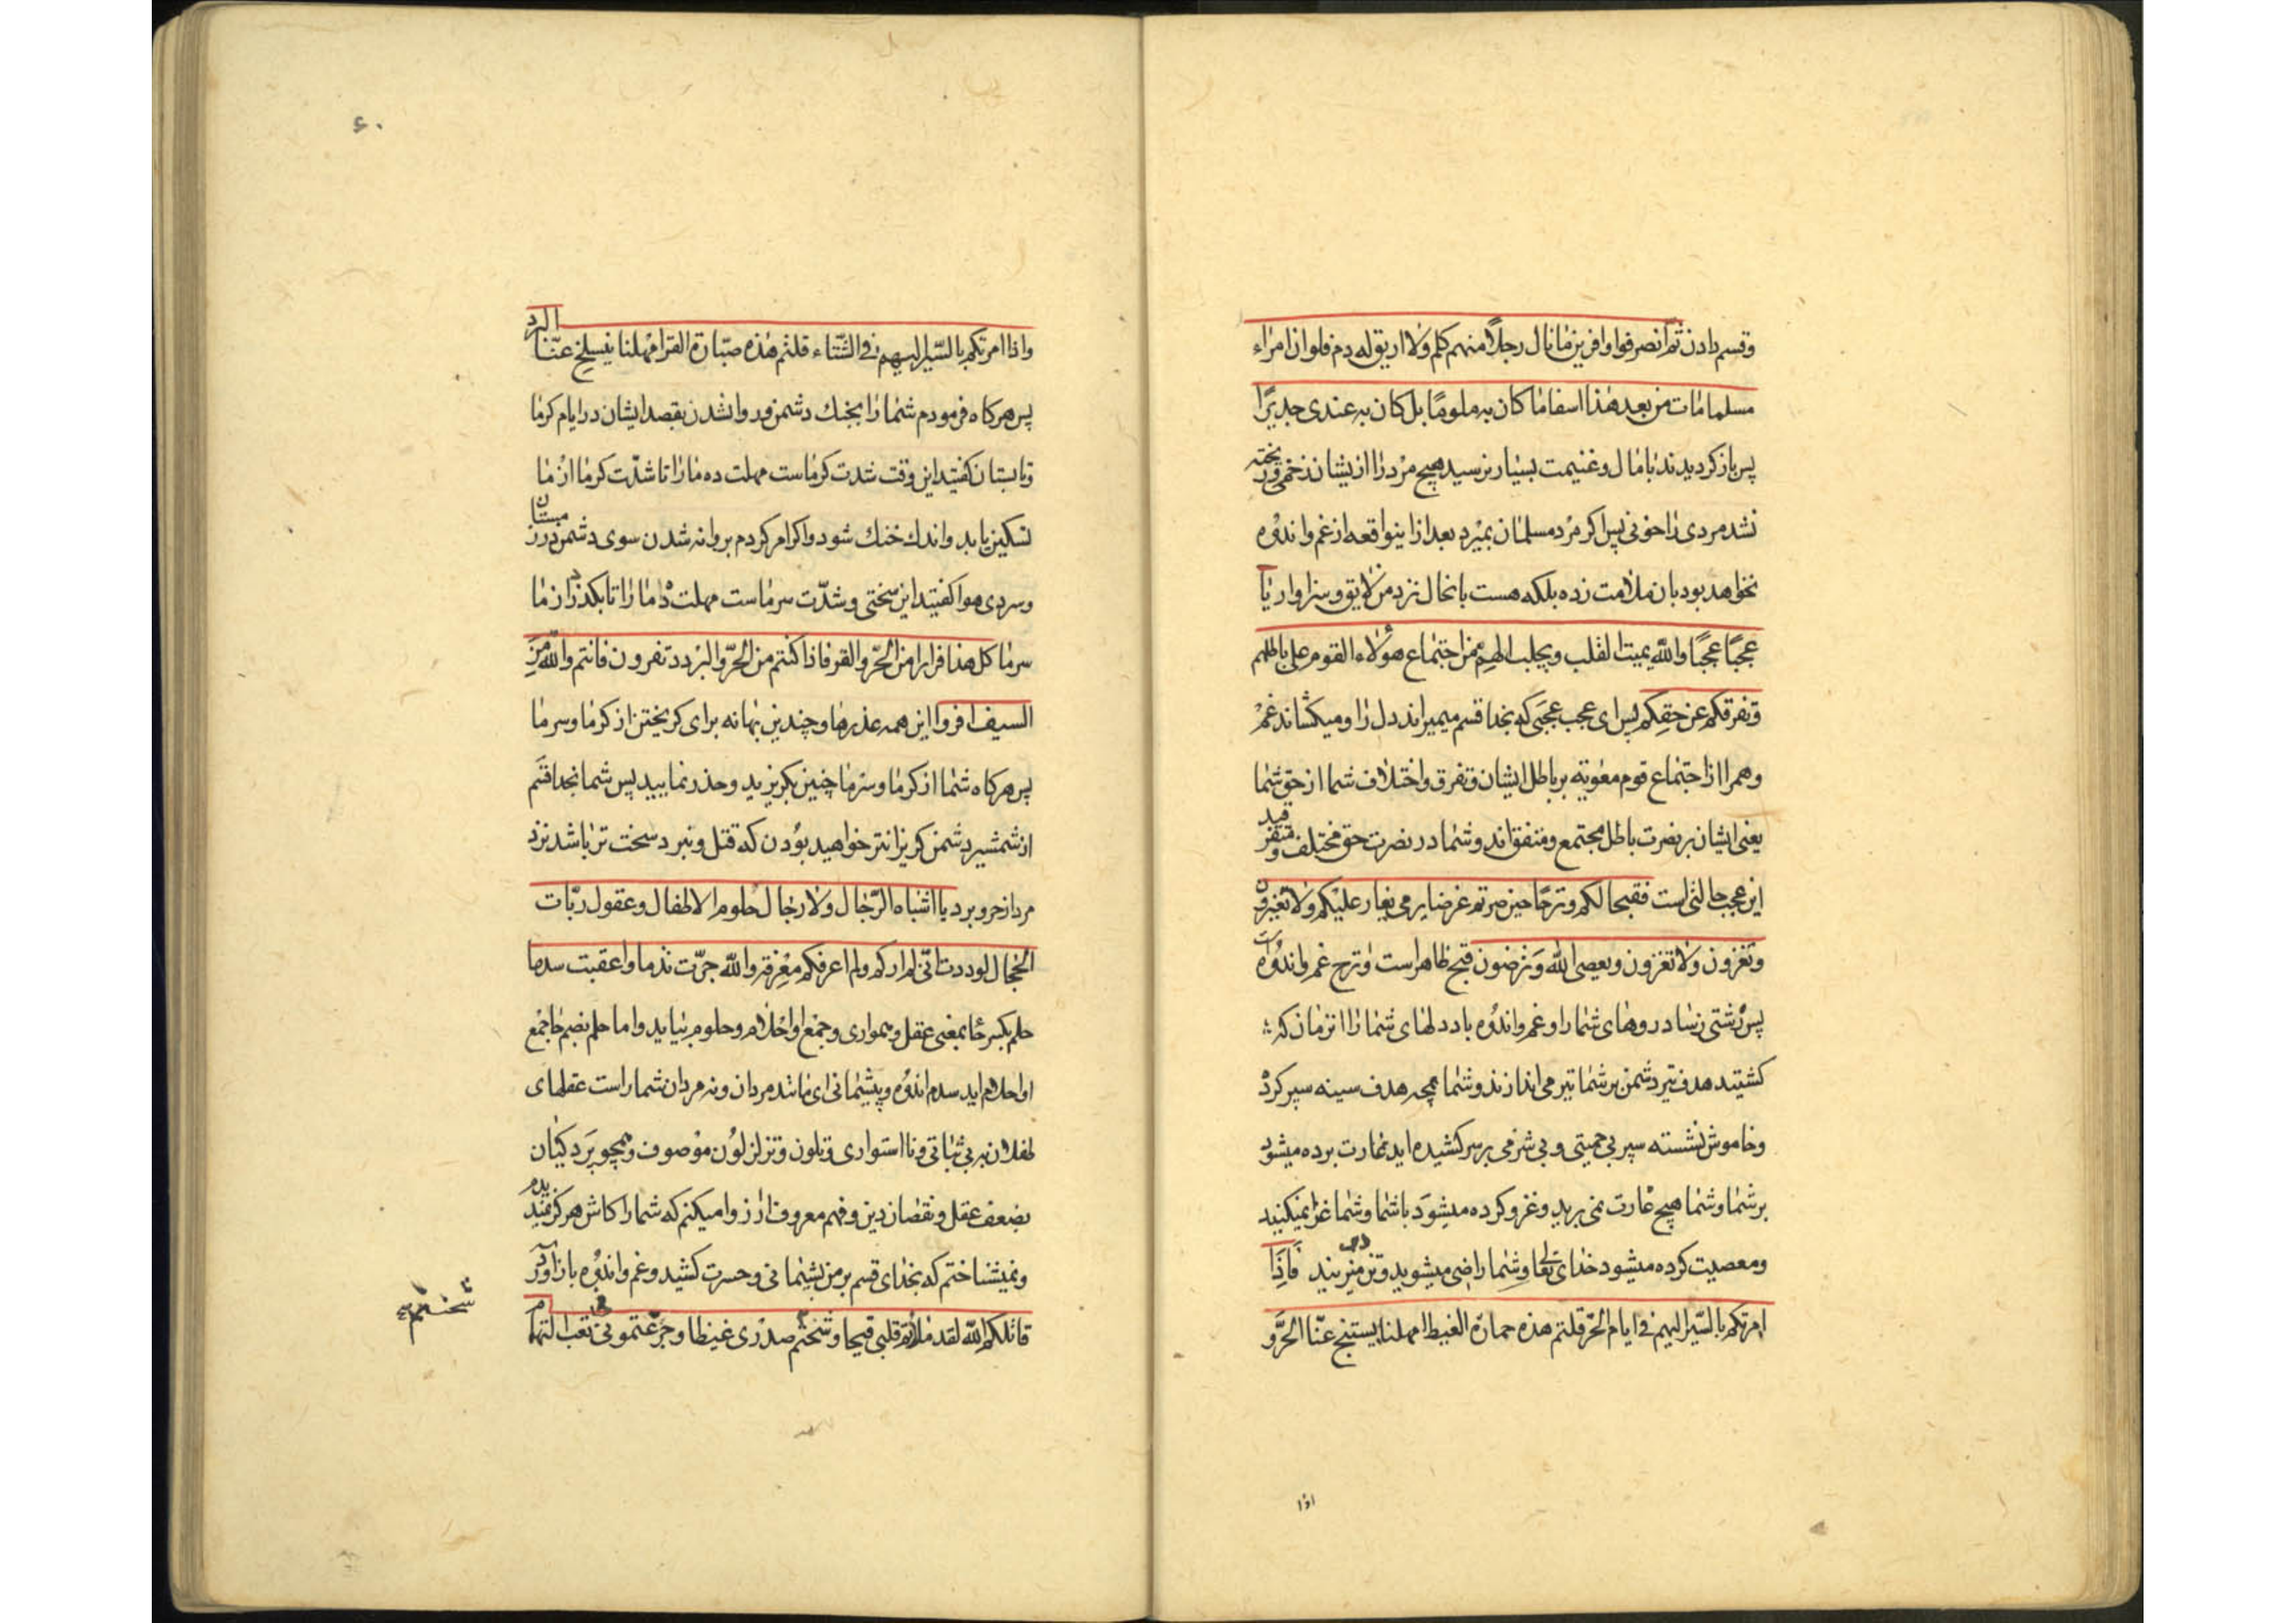 وقسم دادن ثم انصرفوا وافرین مانال رجلا منهم کلم ولا اریق له دم فلو ان امراء
مسلما مات من بعد هذا اسفا ما کان به ملوما بل کان به عندی جدیرا
پس باز کردیدند با مال و غنیمت بسیار نرسید هیچ مرد را از ایشان زخمی و ریخته
نشد مردی را خونی پس اکر مرد مسلمان بمیرد بعد از اینواقعه از غم و اندوه
نخواهد بود بان ملامت زده بلکه هست بانحال نزد من لایق و سزاوار یا
عجبا عجبا والله یمیت القلب ویجلب الهم من اجتماع هؤلاء القوم علی باطلهم
وتفرقکم عن حقکم پس ای عجب عجبی که بخدا قسم میمیراند دل را و میکشاند غم
و هم را از اجتماع قوم معویه بر باطل ایشان و تفرق و اختلاف شما از حق شما
یعنی ایشان بر نصرت باطل مجتمع و متفق اند و شما در نصرت حق مختلف و متفرقید
این عجب حالتی است فقبحا لکم وترحا حین صرتم غرضا یرمی یغار علیکم ولا تغیرون
وتغزون ولا تغزون ویعصی الله وترضون قبح ظاهر است و ترح غم و اندوه است
پس زشتی رسا در روهای شما را و غم و اندوه باد دلهای شما را از زمان که
کشتید هدف تیر دشمن بر شما تیر می اندازند و شما همچه هدف سینه سپر کرده
و خاموش نشسته سپر بی حمیتی و بی شرمی بر سر کشیده اید غارت برده میشود
بر شما و شما هیچ غارت نمی برید و غزو کرده میشود با شما و شما غزا نمیکنید
و معصیت کرده میشود خدای تعالی و شما راضی میشوید و تن میدهید فاذا
امرتکم بالسیر الیهم فی ایام الحر قلتم هذه حمارة الغیظ امهلنا یسبخ عنا الحر و
اذا
۶۰
واذا امرتکم بالسیر الیهم فی الشتاء قلتم هذه صبارة القر امهلنا ینسلخ عنا البرد
پس هرکاه فرمودم شما را بجنك دشمن و روانشدن بقصد ایشان در ایام کرما
و تابستان کفتید این وقت شدت کرماست مهلت ده ما را تا شدت کرما از ما
تسکین یابد و اندك خنك شود و اکر امر کردم بروانه شدن سوی دشمن در زمستان
و سردی هوا کفتید این سختی و شدت سرماست مهلت ده ما را تا بکذرد از ما
سرما کل هذا فرارا من الحر والقر فاذا کنتم من الحر والبرد تفرون فانتم والله من
السیف افر و این همه عذرها و چندین بهانه برای کریختن از کرما و سرما
پس هرکاه شما از کرما و سرما چنین بکریزید و حذر نمایید پس شما بخدا قسم
از شمشیر دشمن کریزانتر خواهید بودن که قتل و نبرد سخت تر باشد نزد
مرد از حر و برد یا اشباه الرجال ولا رجال حلوم الاطفال وعقول ربات
الحجال لوددت انی لم ارکم ولم اعرفکم معرفة والله جرت ندما واعقبت سدما
حلم بکسر حا بمعنی عقل و همواری و جمع او احلام و حلوم بیاید و اما حلم بضم حا جمع
او احلام اید سدم اندوه و پشیمانی ای مانند مردان و نه مردان شما راست عقلهای
طفلان به بی ثباتی و نااستواری و تلون و تزلزل موصوف و همچو پردکیان
بضعف عقل و نقصان دین و فهم معروف ارزوا میکنم که شما را کاش هرکز نمیدیدم
و نمیشناختم که بخدای قسم بر من پشیمانی و حسرت کشید و غم و اندوه بار آورد
قاتلکم الله لقد ملأتم قلبی قیحا وشحنتم صدری غیظا وجرعتمونی نغب التهمام
شحنتم